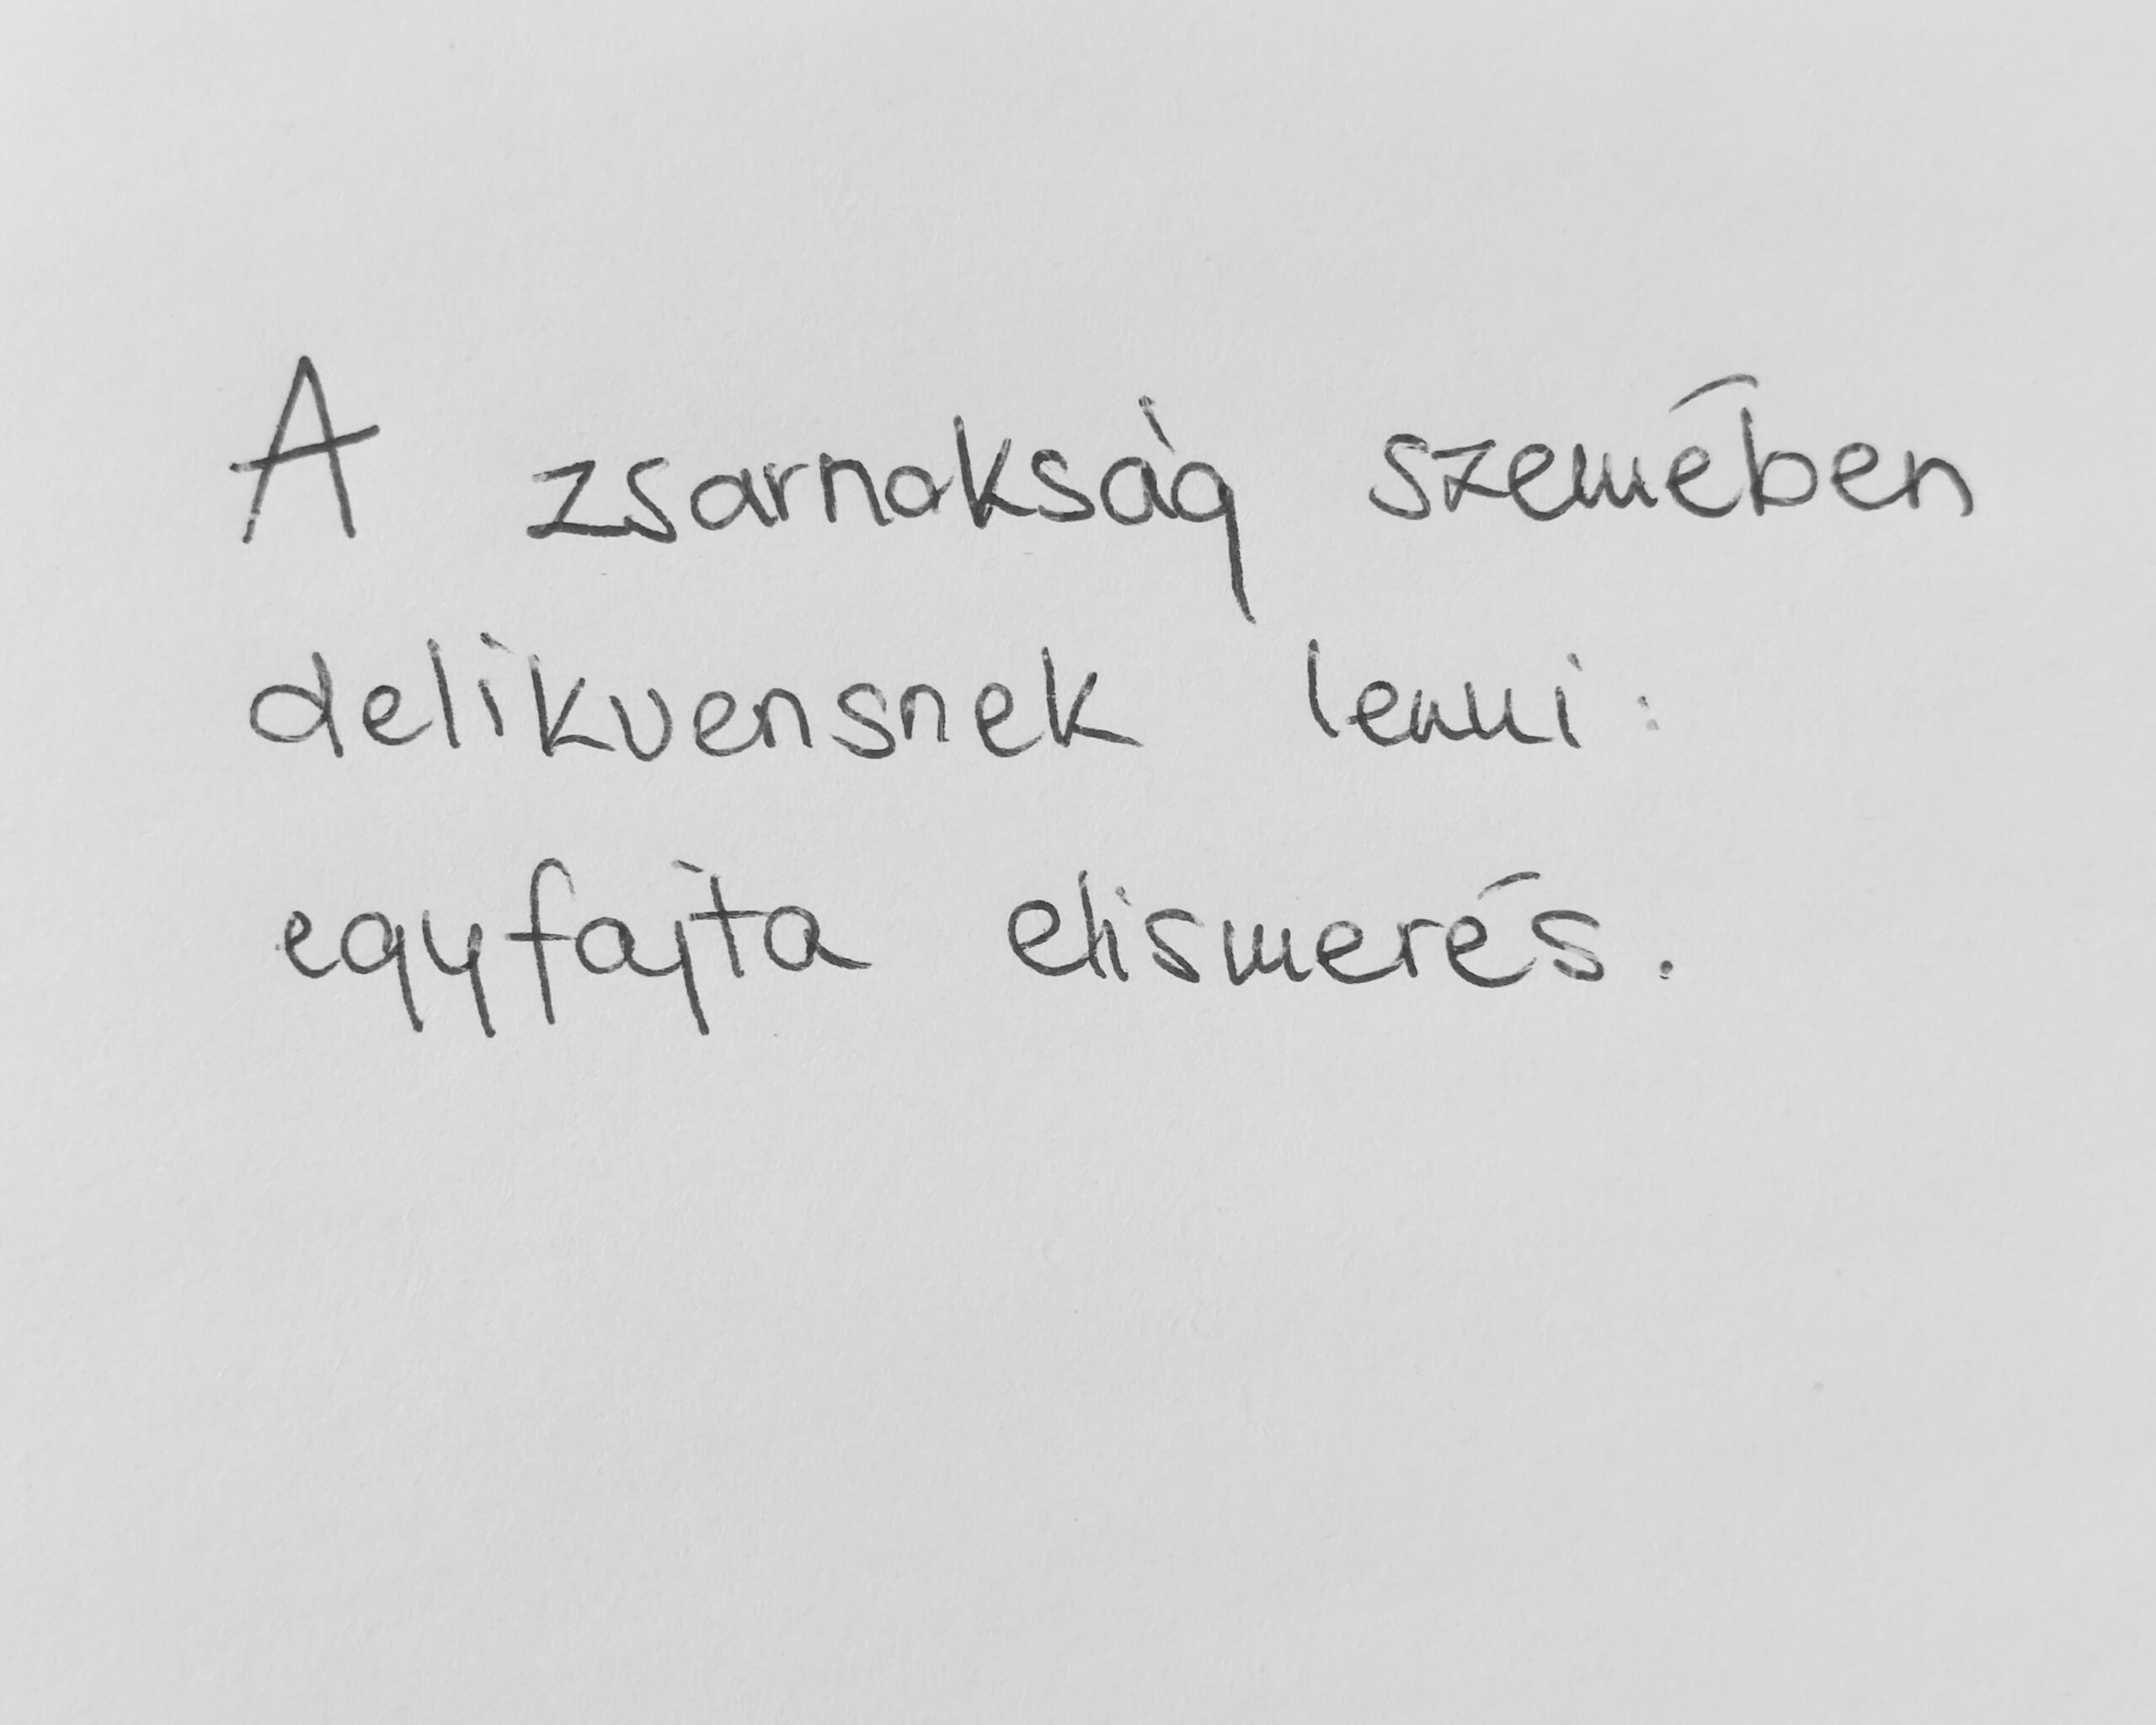 A zsarnokság szemében
delikvensnek lenni:
egyfajta elismerés.